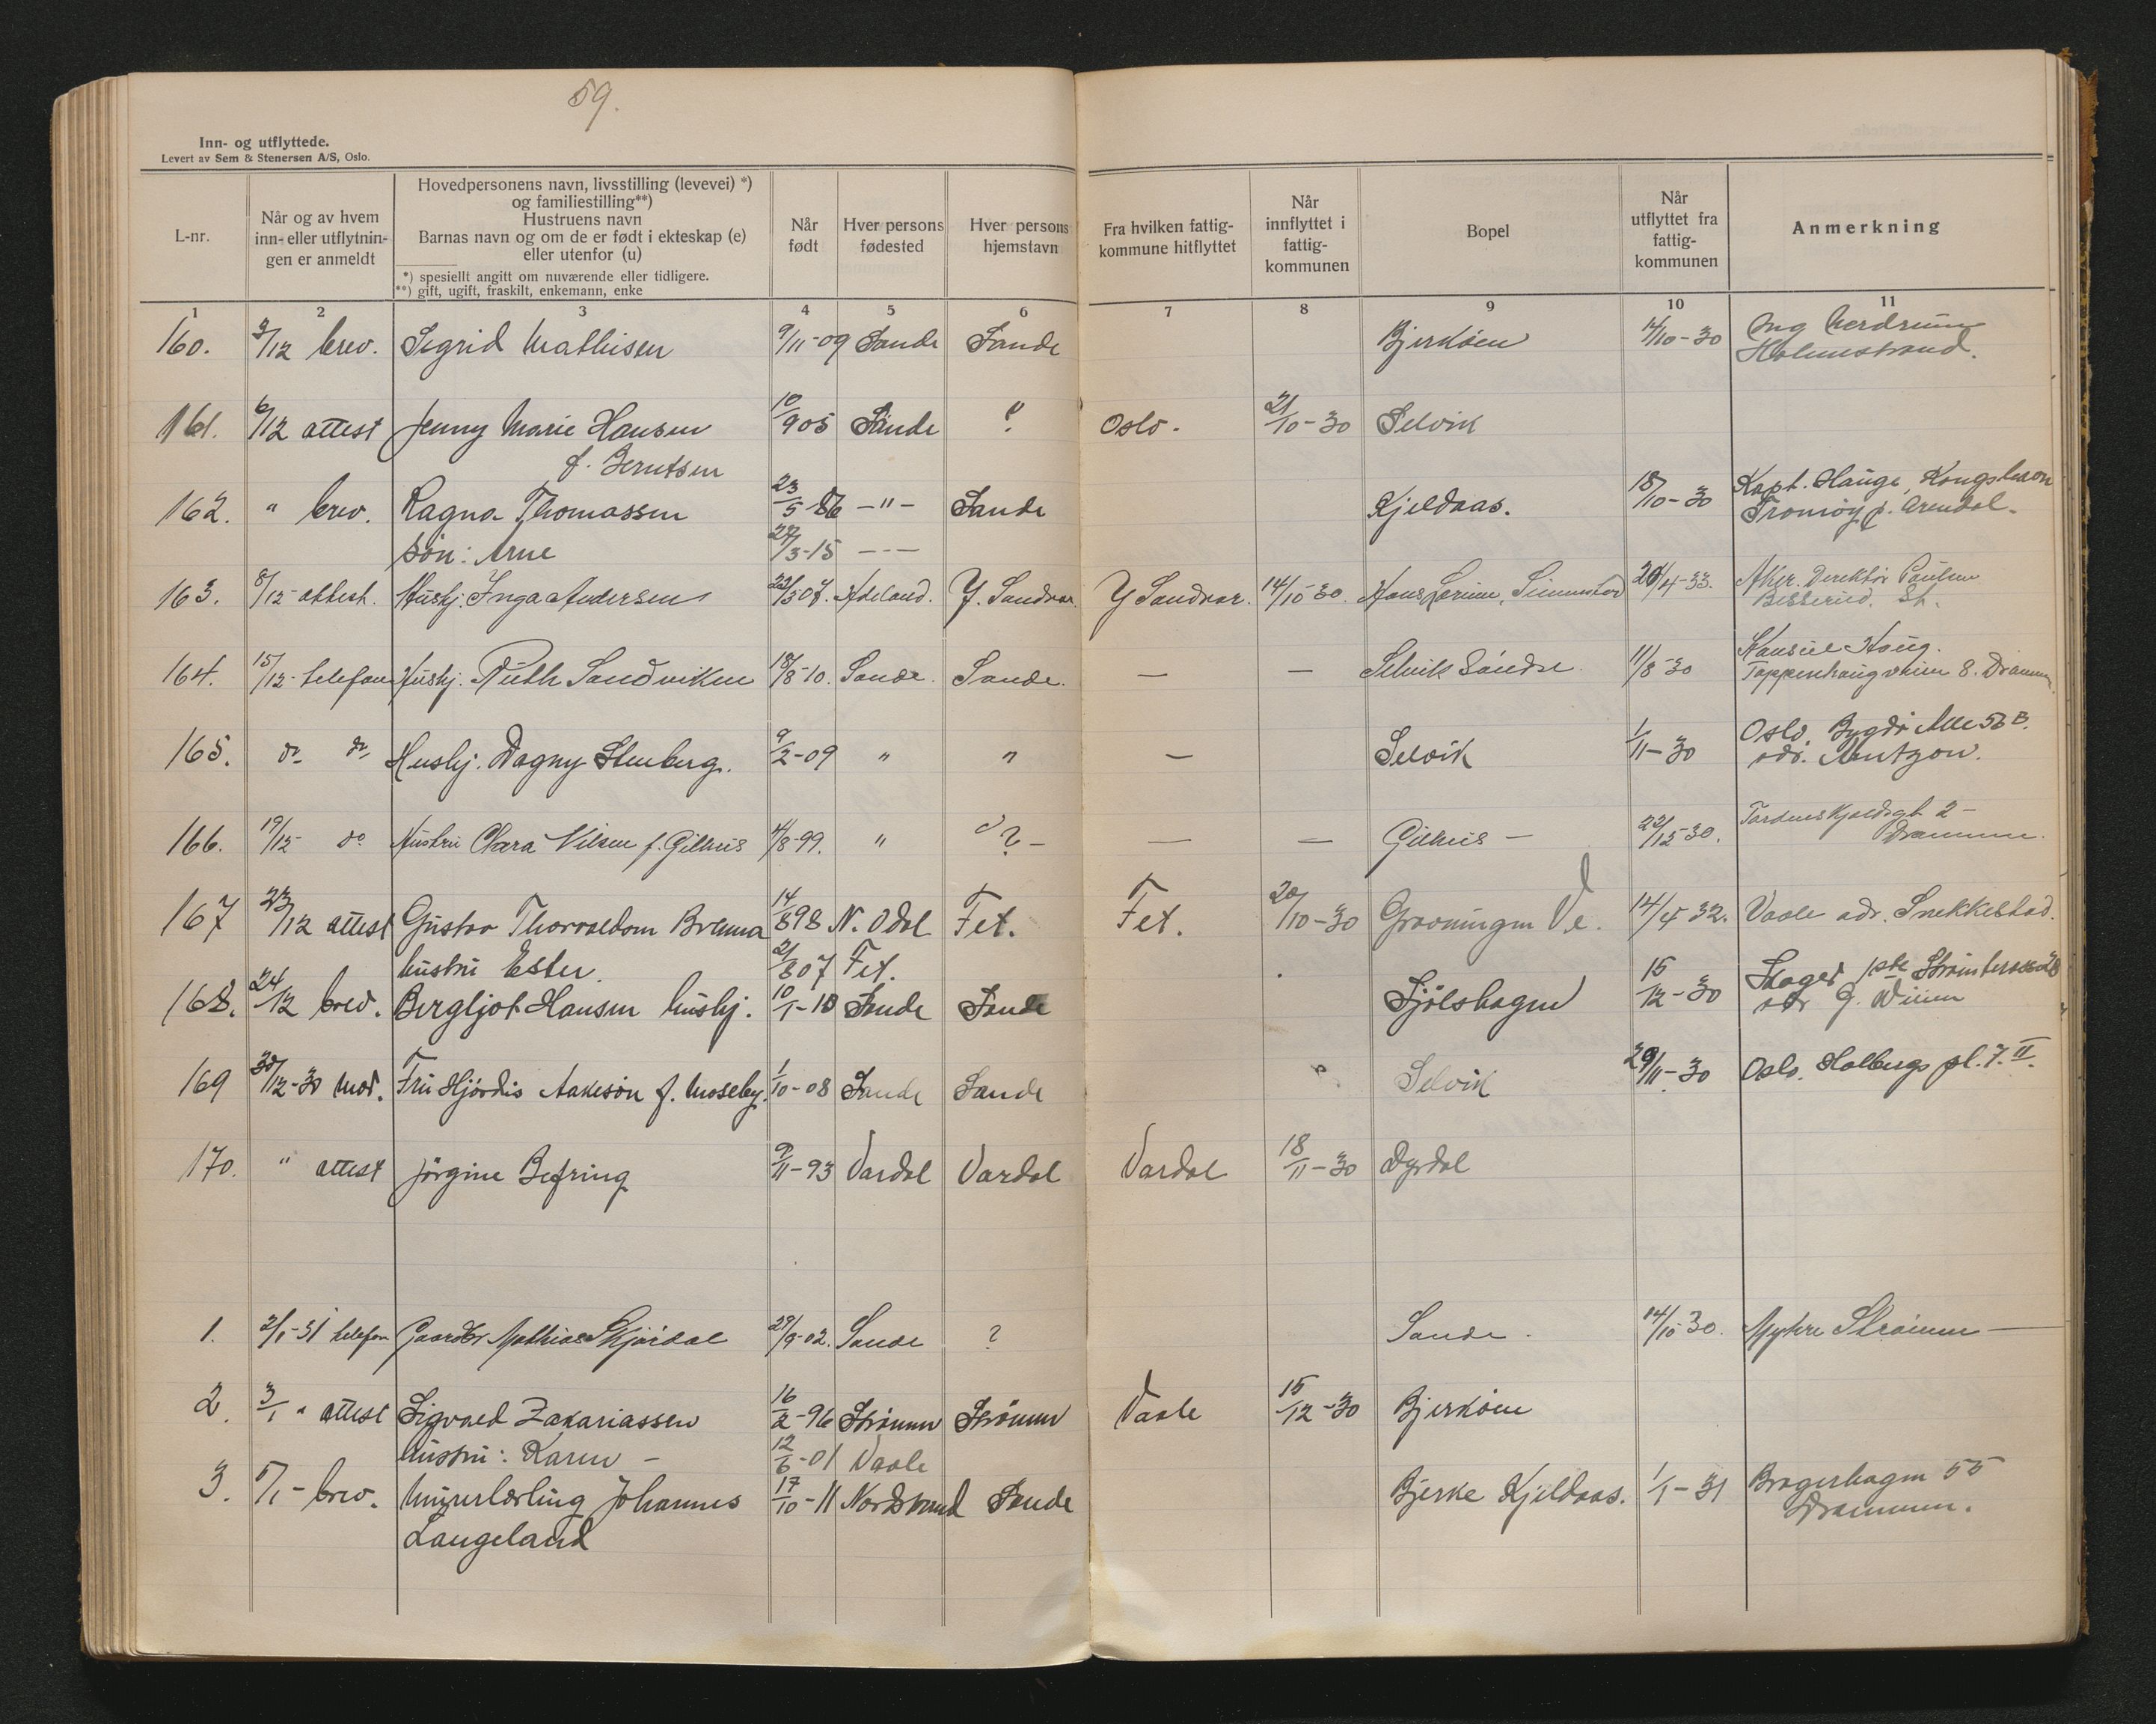 59.
Inn- og utflyttede.
Levert av Sem & Stenersen A/S, Oslo.
L-nr.
Når og av hvem inn- eller utflytnin- gen er anmeldt
Hovedpersonens navn, livsstilling (levevei) *)
og familiestilling**)
Hustruens navn
Barnas navn og om de er født i ekteskap (e)
eller utenfor (u)
*) spesiellt angitt om nuværende eller tidligere.
**) gift, ugift, fraskilt, enkemann, enke
Når født
Hver persons fødested
Hver persons hjemstavn
Fra hvilken fattig- kommune hitflyttet
Når innflyttet i fattig- kommunen
Bopel
Når utflyttet fra fattig- kommunen
Anmerkning
1 2 3 4 5 6 7 8 9 10 11
160. 3/12 brev. Sigrid Mathisen 9/11-09 Sande Sande Bjerköen 14/10-30 Ing
Holmestrand.
161. 6/12 attest Jenny Marie Hansen 10/9 05 Sande ? Oslo. 21/10-30 Selvik
f. Berntsen
162. " brev. Ragna Thomassen 23/5-86 -"- Sande Kjeldaas. 18/10-30 Kapt. Hauge, Kongshavn
Tromöy p. Arendal.
sön: Arne 27/3-15 -"-
163. 8/12- attest. Hushj. Inga Andersen 22/5 07. Y. Sandvar Y Sandvar. 14/10-30. Hans 20/4-33. Aker. Direktör Paulsen
164. 15/12- telefon Hushj. Ruth Sandviken 18/8-10. Sande. Sande. — — Selvik Söndre 11/8-30
8. Drammen.
165. do do Hushj. Dagny Stenberg. 9/2-09 " " — Selvik 1/11-30 Oslo, Bygdö Alle 56 B.
adr. Arntzen.
166. 19/12- do Hustru Clara Nilsen f. Gilhus 4/8-99. " ?- — — Gilhus — 22/12-30. Tordenskjoldsgt 2-
Drammen.
167 23/12 attest Gustav Thorvaldsen Brenna 14/8 98 N. Odal Fet. Fet. 20/10-30 Grøningen V.e. 14/4 32. Vaale adr. Snekkestad.
hustru Ester. 21/8 07 Fet.
168. 24/12 brev. Bergljot Hansen hushj. 10/1-10 Sande Sande Fjölshagen 15/12-30 Skoger
169 30/12-30 Mor. Fru Hjördis Aakesön f. Moseby. 1/10-08 Sande Sande " Selvik 29/11-30 Oslo. Holbergs pl. 7. II.
170. " attest Jörgine Befring 9/11-93 Vardal Vardal Vardal 18/11-30 Dyrdal
1. 2/1-31 telefon Gaardbr Mathias Skjördal 29/9-02. Sande ? Sande. 14/10 30. Myhre Strömm —
2. 3/1 " attest Sigvald Zakariassen 16/2-96 Strömm Strömm Vaale 15/12-30 Bjerköen
hustru: Karen - 12/6-01 Vaale
3. 5/1- brev. Murerlærling Johannes 17/10-11 Nordstrand Sande Bjerke Kjeldaas. 1/1-31 Bragerhagen 55
Langeland
Drammen.